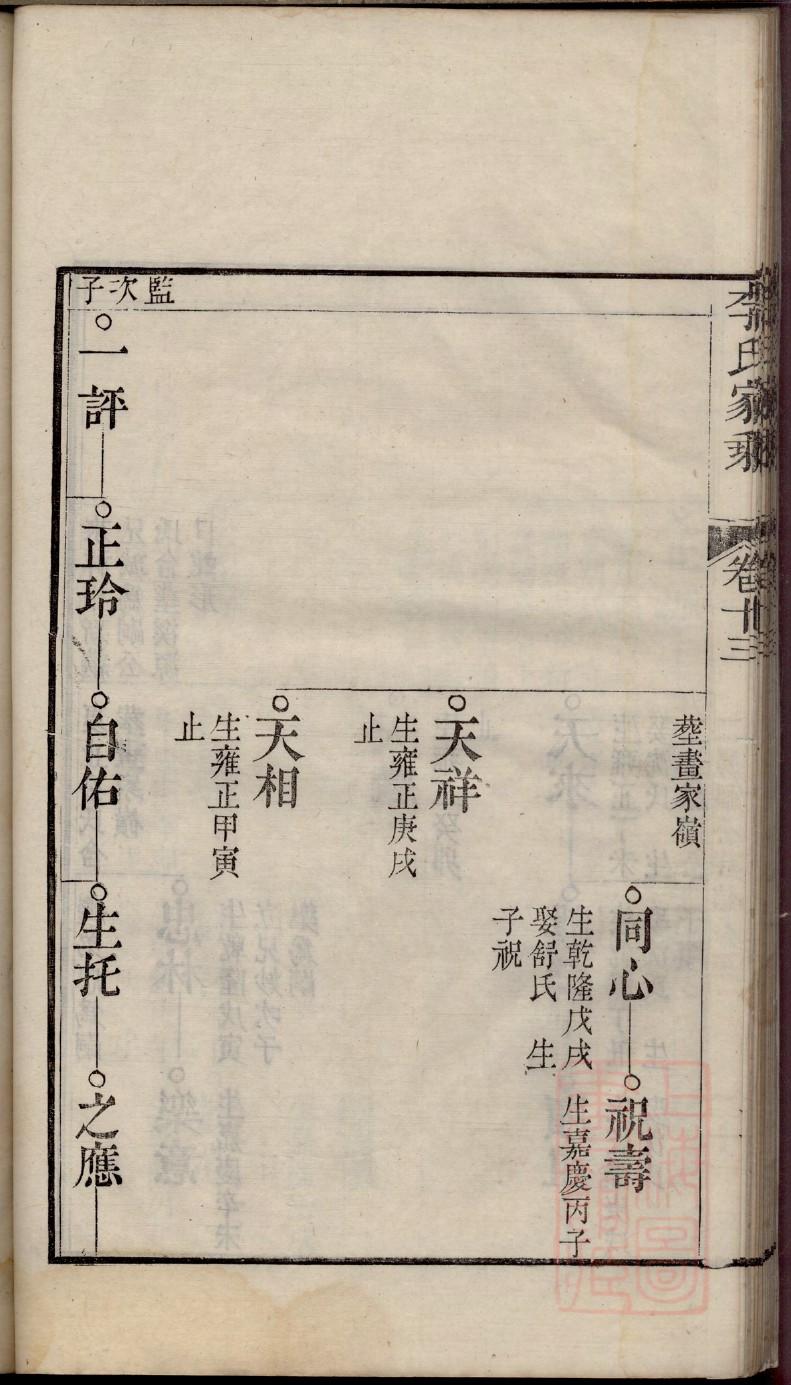 李氏家乘
卷十三
塟畫家嶺
同心
生乾隆戊戌
娶舒氏　生
子祝
祝壽
生嘉慶丙子
天祥
生雍正庚戌
止
天相
生雍正甲寅
止
監次子
一評
正玲
自佑
生托
之應